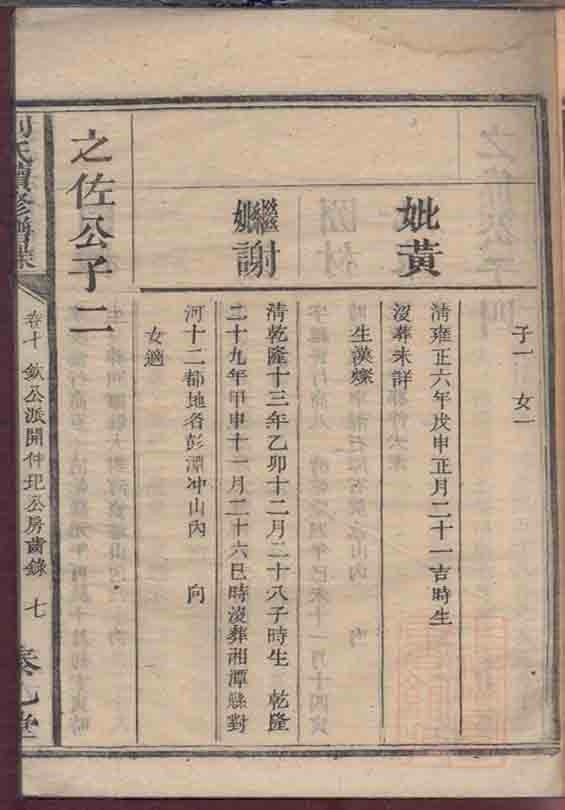 子一 女一
妣黄
清雍正六年戊申正月二十一吉時生
沒葬未詳
生漢燦
繼妣謝
清乾隆十三年乙卯十二月二十八子時生 乾隆
二十九年甲申十一月二十六巳時沒葬湘潭縣對
河十二都地名彭潭冲山內 向
女適
之佐公子二
氏續修譜
卷十 欽公派開仲玘公房齒錄 七